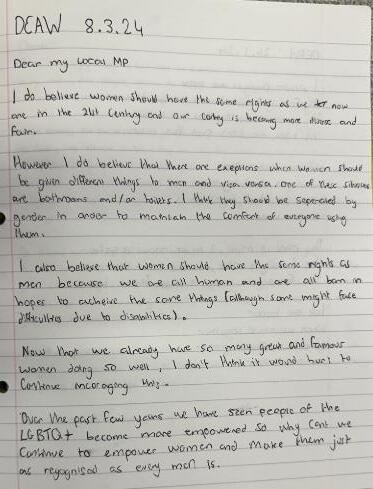 DCAW 8.3.24
Dear my Local MP
I do believe women should have the same rights as we now
are in the 21st century and our contry is becoming more diverse and
fair.
However I do believe that there are exeptions when women should
be given different things to men and visa versa. One of these
are bathrooms and/or toilets. I think they should be seperated by
gender in order to maintain the comfort of everyone using
them.
I also believe that women should have the same rights as
men because we are all human and are all born in
hopes to acheive the same things (although some might face
difficulties due to disabilities).
Now that we already have so many great and famous
women doing so well, I don't think it would hurt to
Continue incoraging this.
Over the past few years we have seen people of the
LGBTQ+ become more empowered so why cant we
Continue to empower women and make them just
as recognised as every man is.